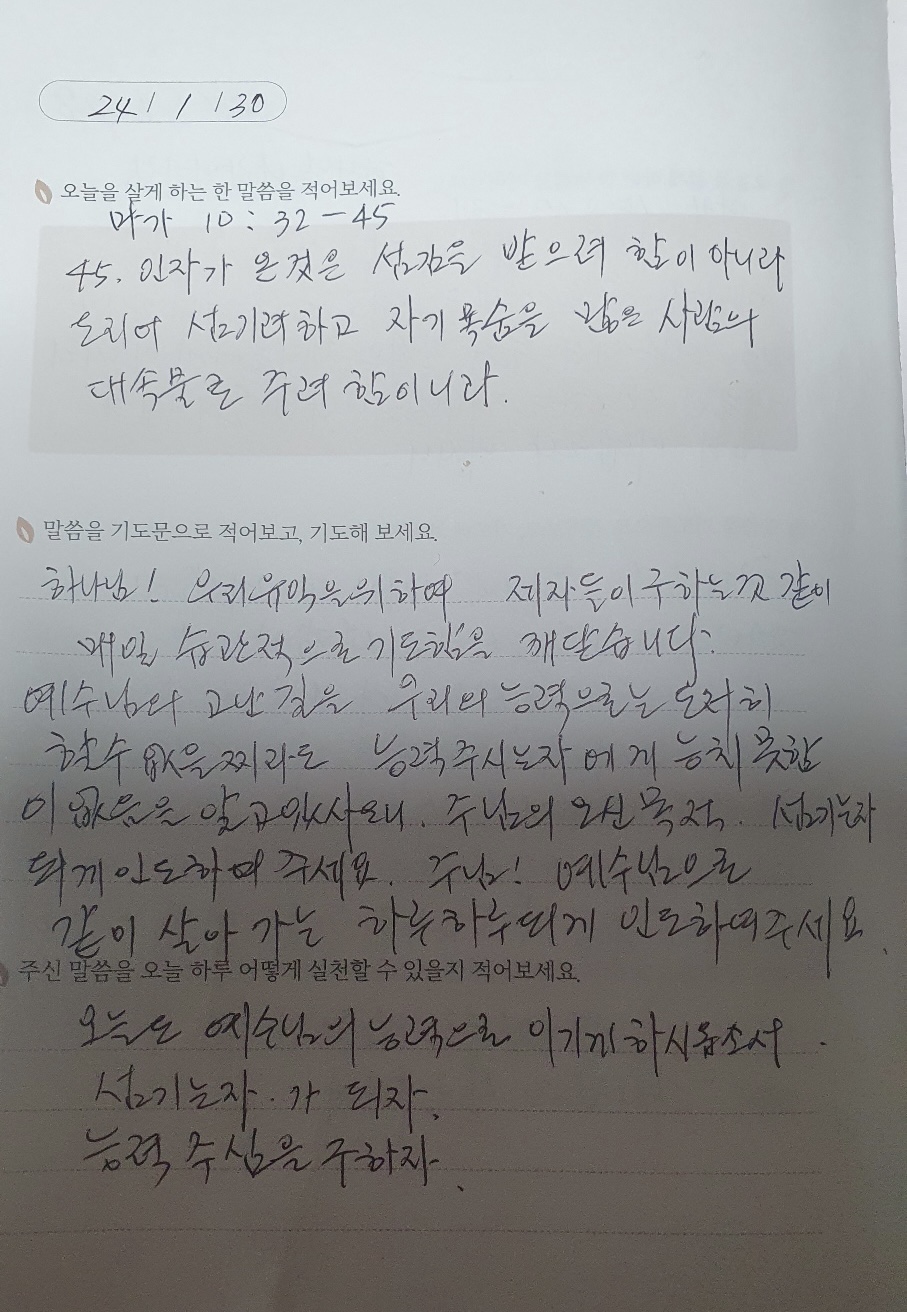 24 / 1 / 30
오늘을 살게 하는 한 말씀을 적어보세요.
마가 10 : 32 - 45
45. 인자가 온것은 섬김을 받으려 함이 아니라
도리어 섬기려하고 자기 목숨을 많은 사람의
대속물로 주려 함이니라.
말씀을 기도문으로 적어보고, 기도해 보세요.
하나님! 우리유익을위하여 제자들이구하는것 같이
매일 습관적으로기도함을 깨닫습니다.
예수님의 고난 길을 우리의능력으로는 도저히
할수 없을찌라도 능력주시는자에게 능치 못함
이 없음을 알고있사오니. 주님의 오신목적. 섬기는자
되게인도하여 주세요. 주님! 예수님으로
같이 살아 가는 하루하루되게 인도하여주세요.
주신 말씀을 오늘 하루 어떻게 실천할 수 있을지 적어보세요.
오늘도 예수님의 능력으로 이기게하시옵소서.
섬기는자.가 되자.
능력 주심을 구하자.